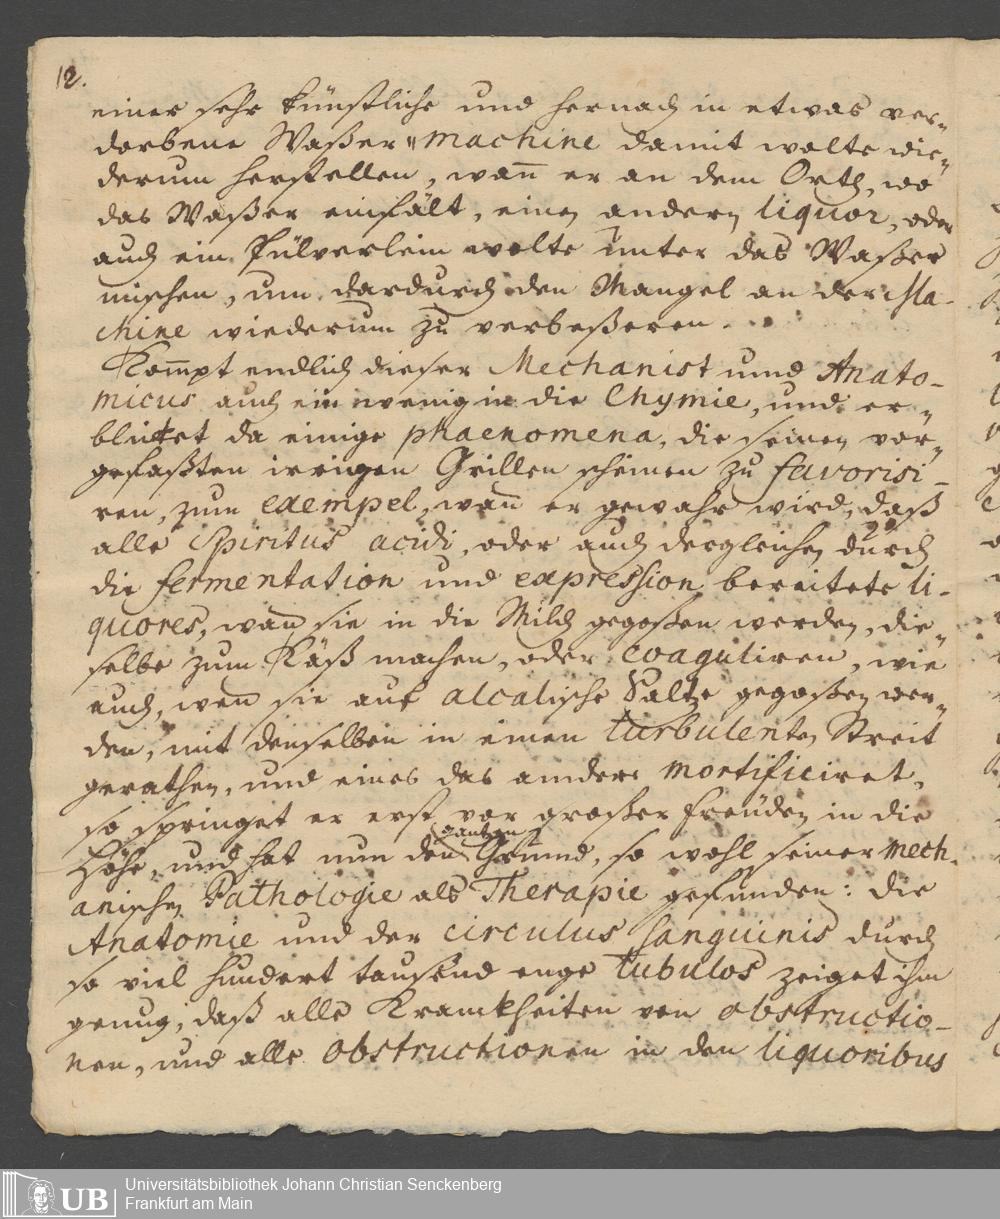 12.
einer sehr künstliche und hernach in etwas ver-
dorbene Waßer-machine damit wolte wie-
derum herstellen, wañ er an dem Orth, wo
das Waßer einfält, einen andern liquor, oder
auch ein Pülverlein wolte unter das Waßer
mischen, um dardurch den Mangel an der Ma-
chine wiederum zu verbeßeren.
Kom̃pt endlich dieser Mechanist und Anato-
micus auch ein wenig in die Chymie, und er-
blicket da einige phaenomena, die seinen vor-
gefaßten irrigen Grillen scheinen zu favorisi-
ren, zum exempel, wañ er gewahr wird, daß
alle Spiritus acidi, oder auch dergleichen durch
die fermentation und expression bereitete li-
quores, wañ sie in die Milch gegoßen werden, die-
selbe zum Käß machen, oder coaguliren, wie
auch, wen sie auf alcalische Saltze gegoßen wer-
den, mit denselben in einen turbulenten Streit
gerathen, und eines das andere mortificiret,
so springet er erst vor großer Freuden in die
gantzen
Höhe, und hat nun den Grund, so wohl seiner mech-
anischen Pathologie als Therapie gefunden: die
Anatomie und der circulus sanguinis durch
so viel hundert tausend enge tubulos zeiget ihm
genug, daß alle Kranckheiten von obstructio-
nen, und alle obstructionen in den liquoribus
UB
Universitätsbibliothek Johann Christian Senckenberg
Frankfurt am Main